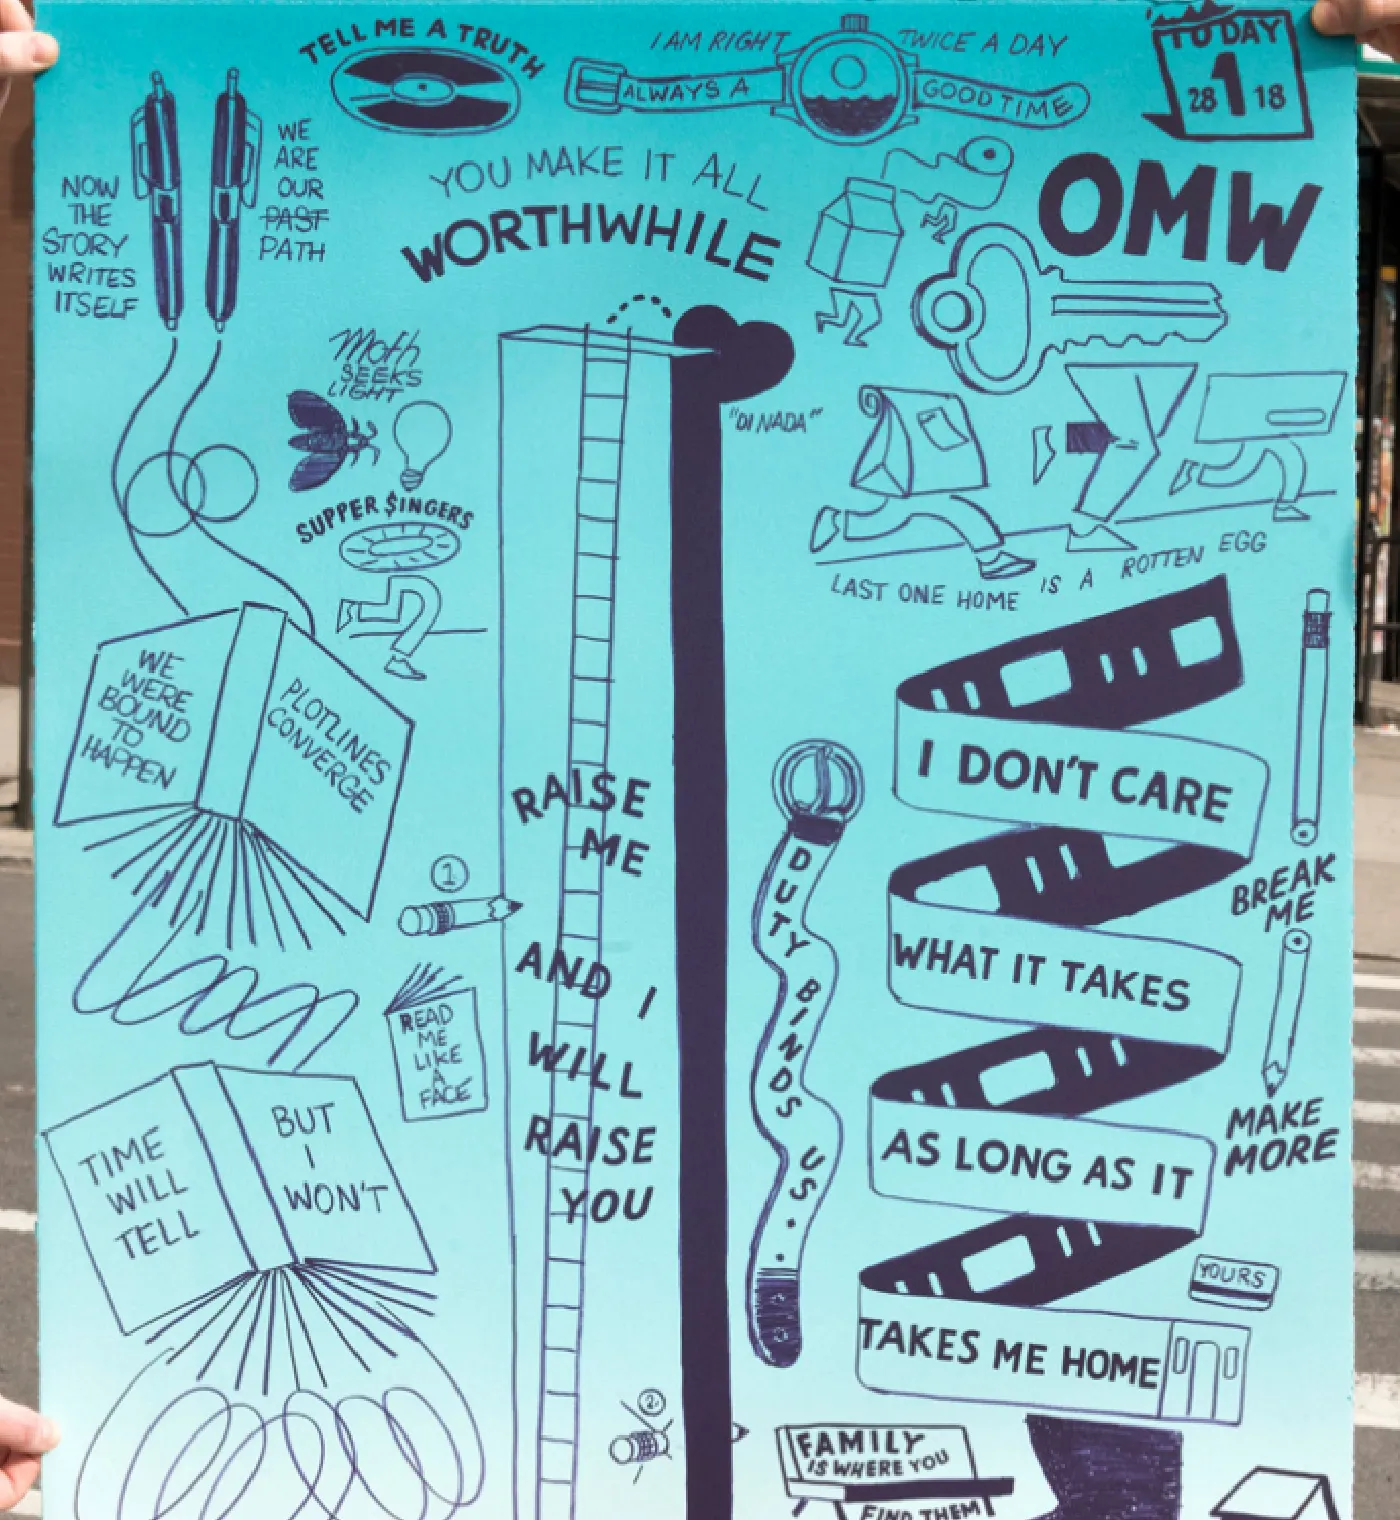 TELL ME A TRUTH
I AM RIGHT TWICE A DAY
ALWAYS A GOOD TIME
TODAY
28 1 18
NOW
THE
STORY
WRITES
ITSELF
WE
ARE
OUR
PAST
PATH
YOU MAKE IT ALL
WORTHWHILE
OMW
"DI NADA"
Moth
SEEKS
LIGHT
SUPPER $INGERS
LAST ONE HOME IS A ROTTEN EGG
WE
WERE
BOUND
TO
HAPPEN
PLOTLINES
CONVERGE
RAISE
ME
AND I
WILL
RAISE
YOU
1
READ
ME
LIKE
A
FACE
TIME
WILL
TELL
BUT
I
WON'T
2
DUTY BINDS US
I DON'T CARE
WHAT IT TAKES
AS LONG AS IT
TAKES ME HOME
BREAK
ME
MAKE
MORE
YOURS
FAMILY
IS WHERE YOU
FIND THEM